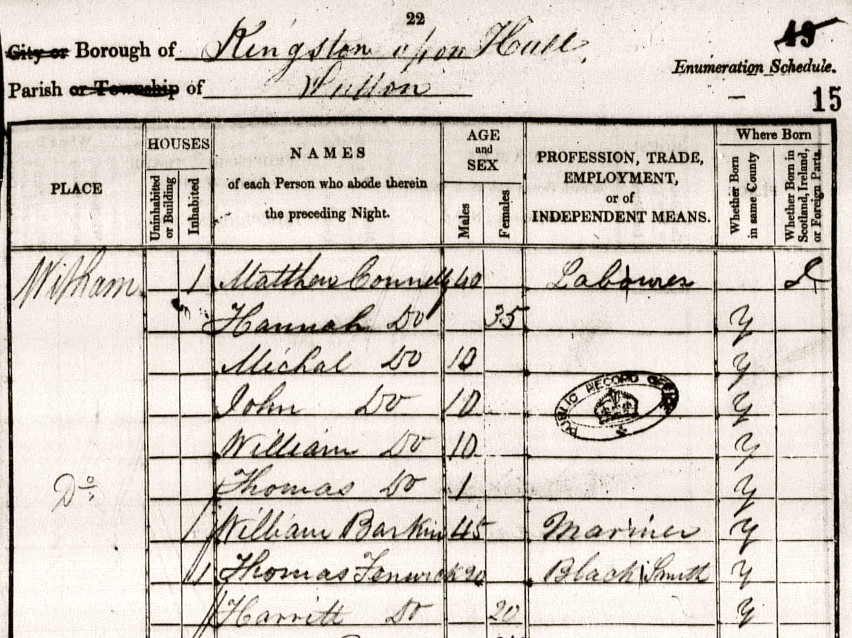 22
City or Borough of Kingston upon Hull
43
Enumeration Schedule.
Parish or Township of Sutton
15
PLACE
HOUSES
Uninhabited or Building
Inhabited
NAMES
of each Person who abode therein
the preceding Night.
AGE
and
SEX
Males
Females
PROFESSION, TRADE,
EMPLOYMENT,
or of
INDEPENDENT MEANS.
Where Born
Whether Born in same County
Whether Born in Scotland, Ireland, or Foreign Parts.
Witham 1 Matthew Connelly 40 Labourer I
Hannah Do 35 y
Michal Do 10 y
John Do 10 y
PUBLIC RECORD OFFICE
William Do 10 y
Do Thomas Do 1 y
William Barkin 45 Mariner y
1 Thomas Fenwick 20 Black Smith y
Harritt Do 20 y